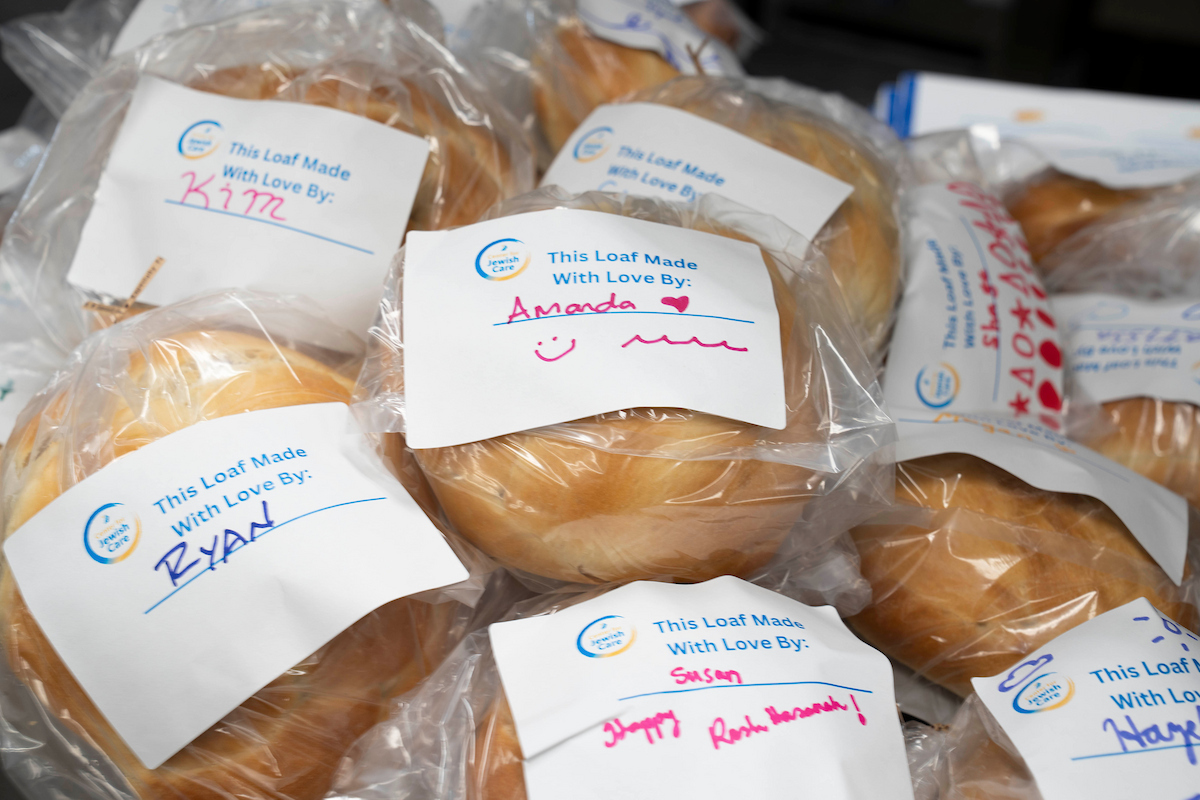 Jewish
Care
This Loaf Made
With Love By:
Kim
This Loaf Made
With Love By:
Jewish
Care
This Loaf Made
With Love By:
Amanda
This Loaf Made
With Love By:
Shaya
Megan
This Loaf Made
With Love By:
Jewish
Care
This Loaf Made
With Love By:
RYAN
Jewish
Care
This Loaf Made
With Love By:
Susan
Happy Rosh Hasanah!
Jewish
Care
This Loaf
With Lo
Haze